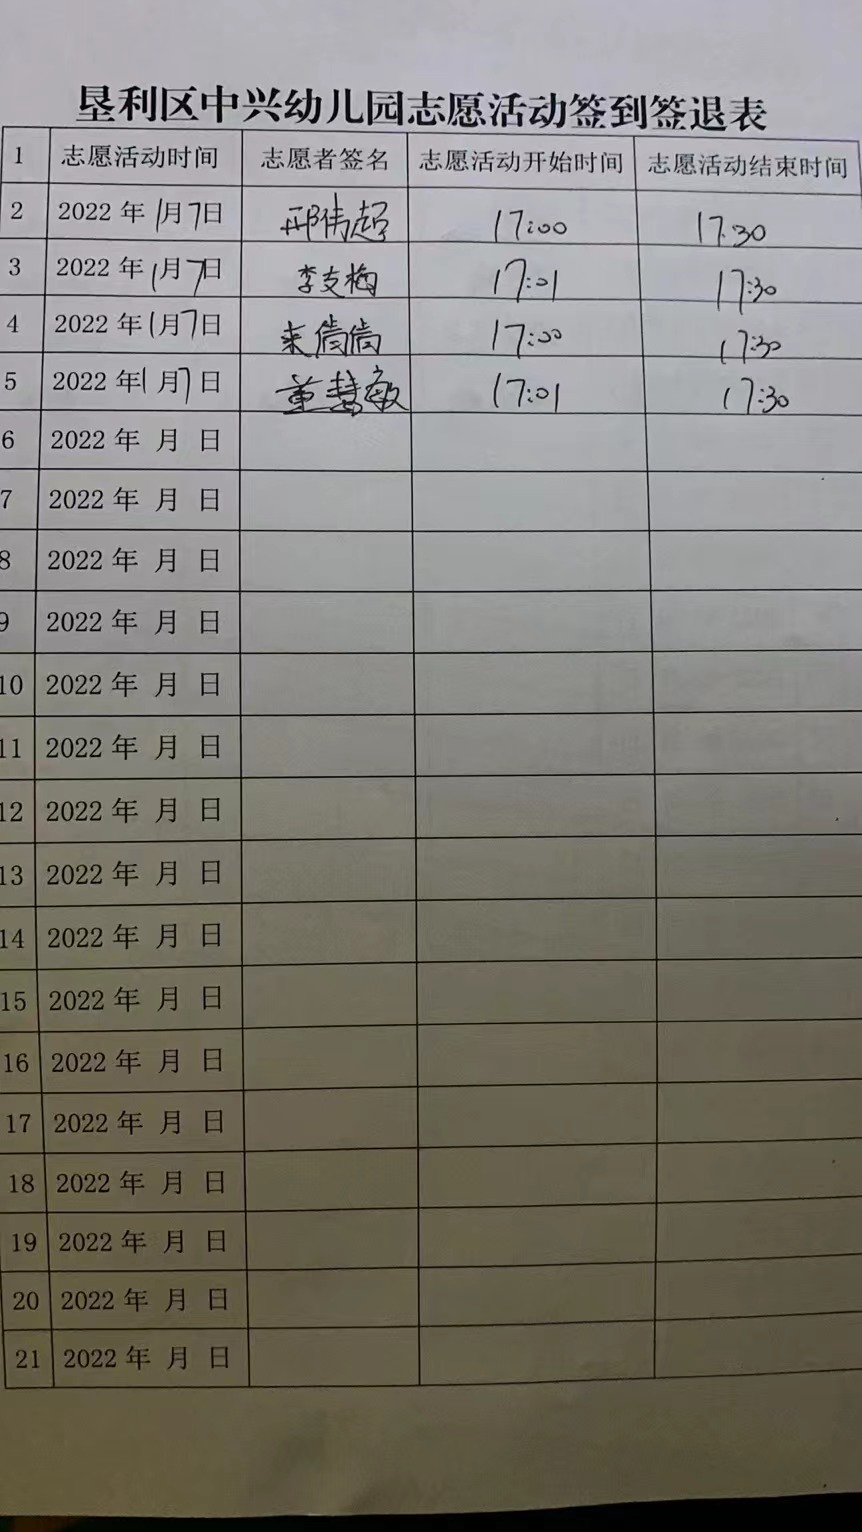 垦利区中兴幼儿园志愿活动签到签退表
1 志愿活动时间 志愿者签名 志愿活动开始时间 志愿活动结束时间
2 2022年1月7日 邢伟超 17:00 17:30
3 2022年1月7日 李支梅 17:01 17:30
4 2022年1月7日 倩倩 17:00 17:30
5 2022年1月7日 董慧敏 17:01 17:30
6 2022年 月 日
7 2022年 月 日
8 2022年 月 日
9 2022年 月 日
10 2022年 月 日
11 2022年 月 日
12 2022年 月 日
13 2022年 月 日
14 2022年 月 日
15 2022年 月 日
16 2022年 月 日
17 2022年 月 日
18 2022年 月 日
19 2022年 月 日
20 2022年 月 日
21 2022年 月 日